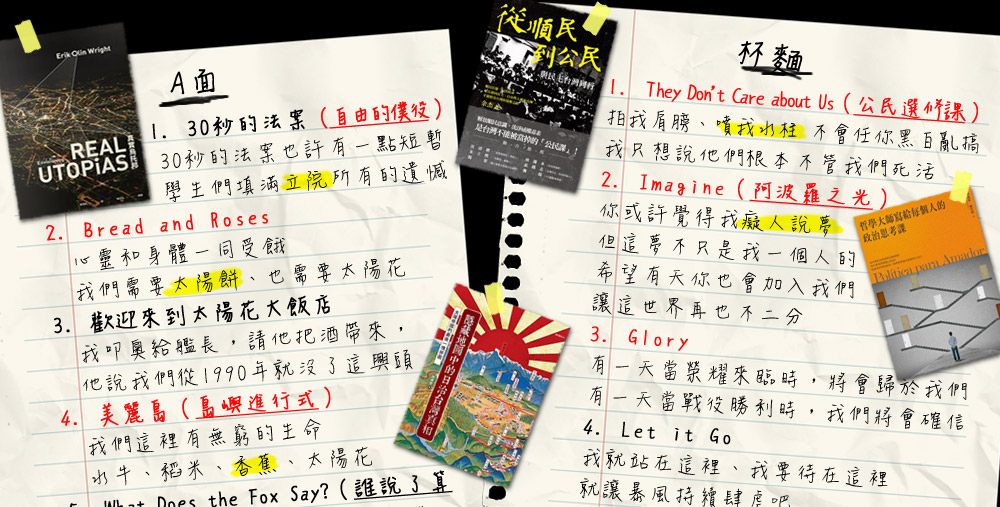 Erik Olin Wright
真實烏托邦
REAL
UTOPiAS
A面
1. 30秒的法案 (自由的僕役)
30秒的法案也許有一點短暫
學生們填滿立院所有的遺憾
2. Bread and Roses
心靈和身體一同受餓
我們需要太陽餅、也需要太陽花
3. 歡迎來到太陽花大飯店
我叩奧給艦長，請他把酒帶來，
他說我們從1990年就沒了這興頭
4. 美麗島 (島嶼進行式)
我們這裡有無窮的生命
水牛、稻米、香蕉、太陽花
5. What Does the Fox Say? (誰說了算
從順民
到公民
與民主台灣同行
余杰
是台灣不能被當掉的「公民課」!
隱藏地圖中的日治台灣真相
杯麵
1. They Don't Care about Us (公民選修課)
拍我肩膀、噴我水柱 不會任你黑白亂搞
我只想說他們根本不管我們死活
2. Imagine (阿波羅之光)
你或許覺得我癡人說夢
但這夢不只是我一個人的
希望有天你也會加入我們
讓這世界再也不二分
3. Glory
有一天當榮耀來臨時，將會歸於我們
有一天當戰役勝利時，我們將會確信
4. Let it Go
我就站在這裡、我要待在這裡
就讓暴風持續肆虐吧
哲學大師寫給每個人的
政治思考課
Política para Amador